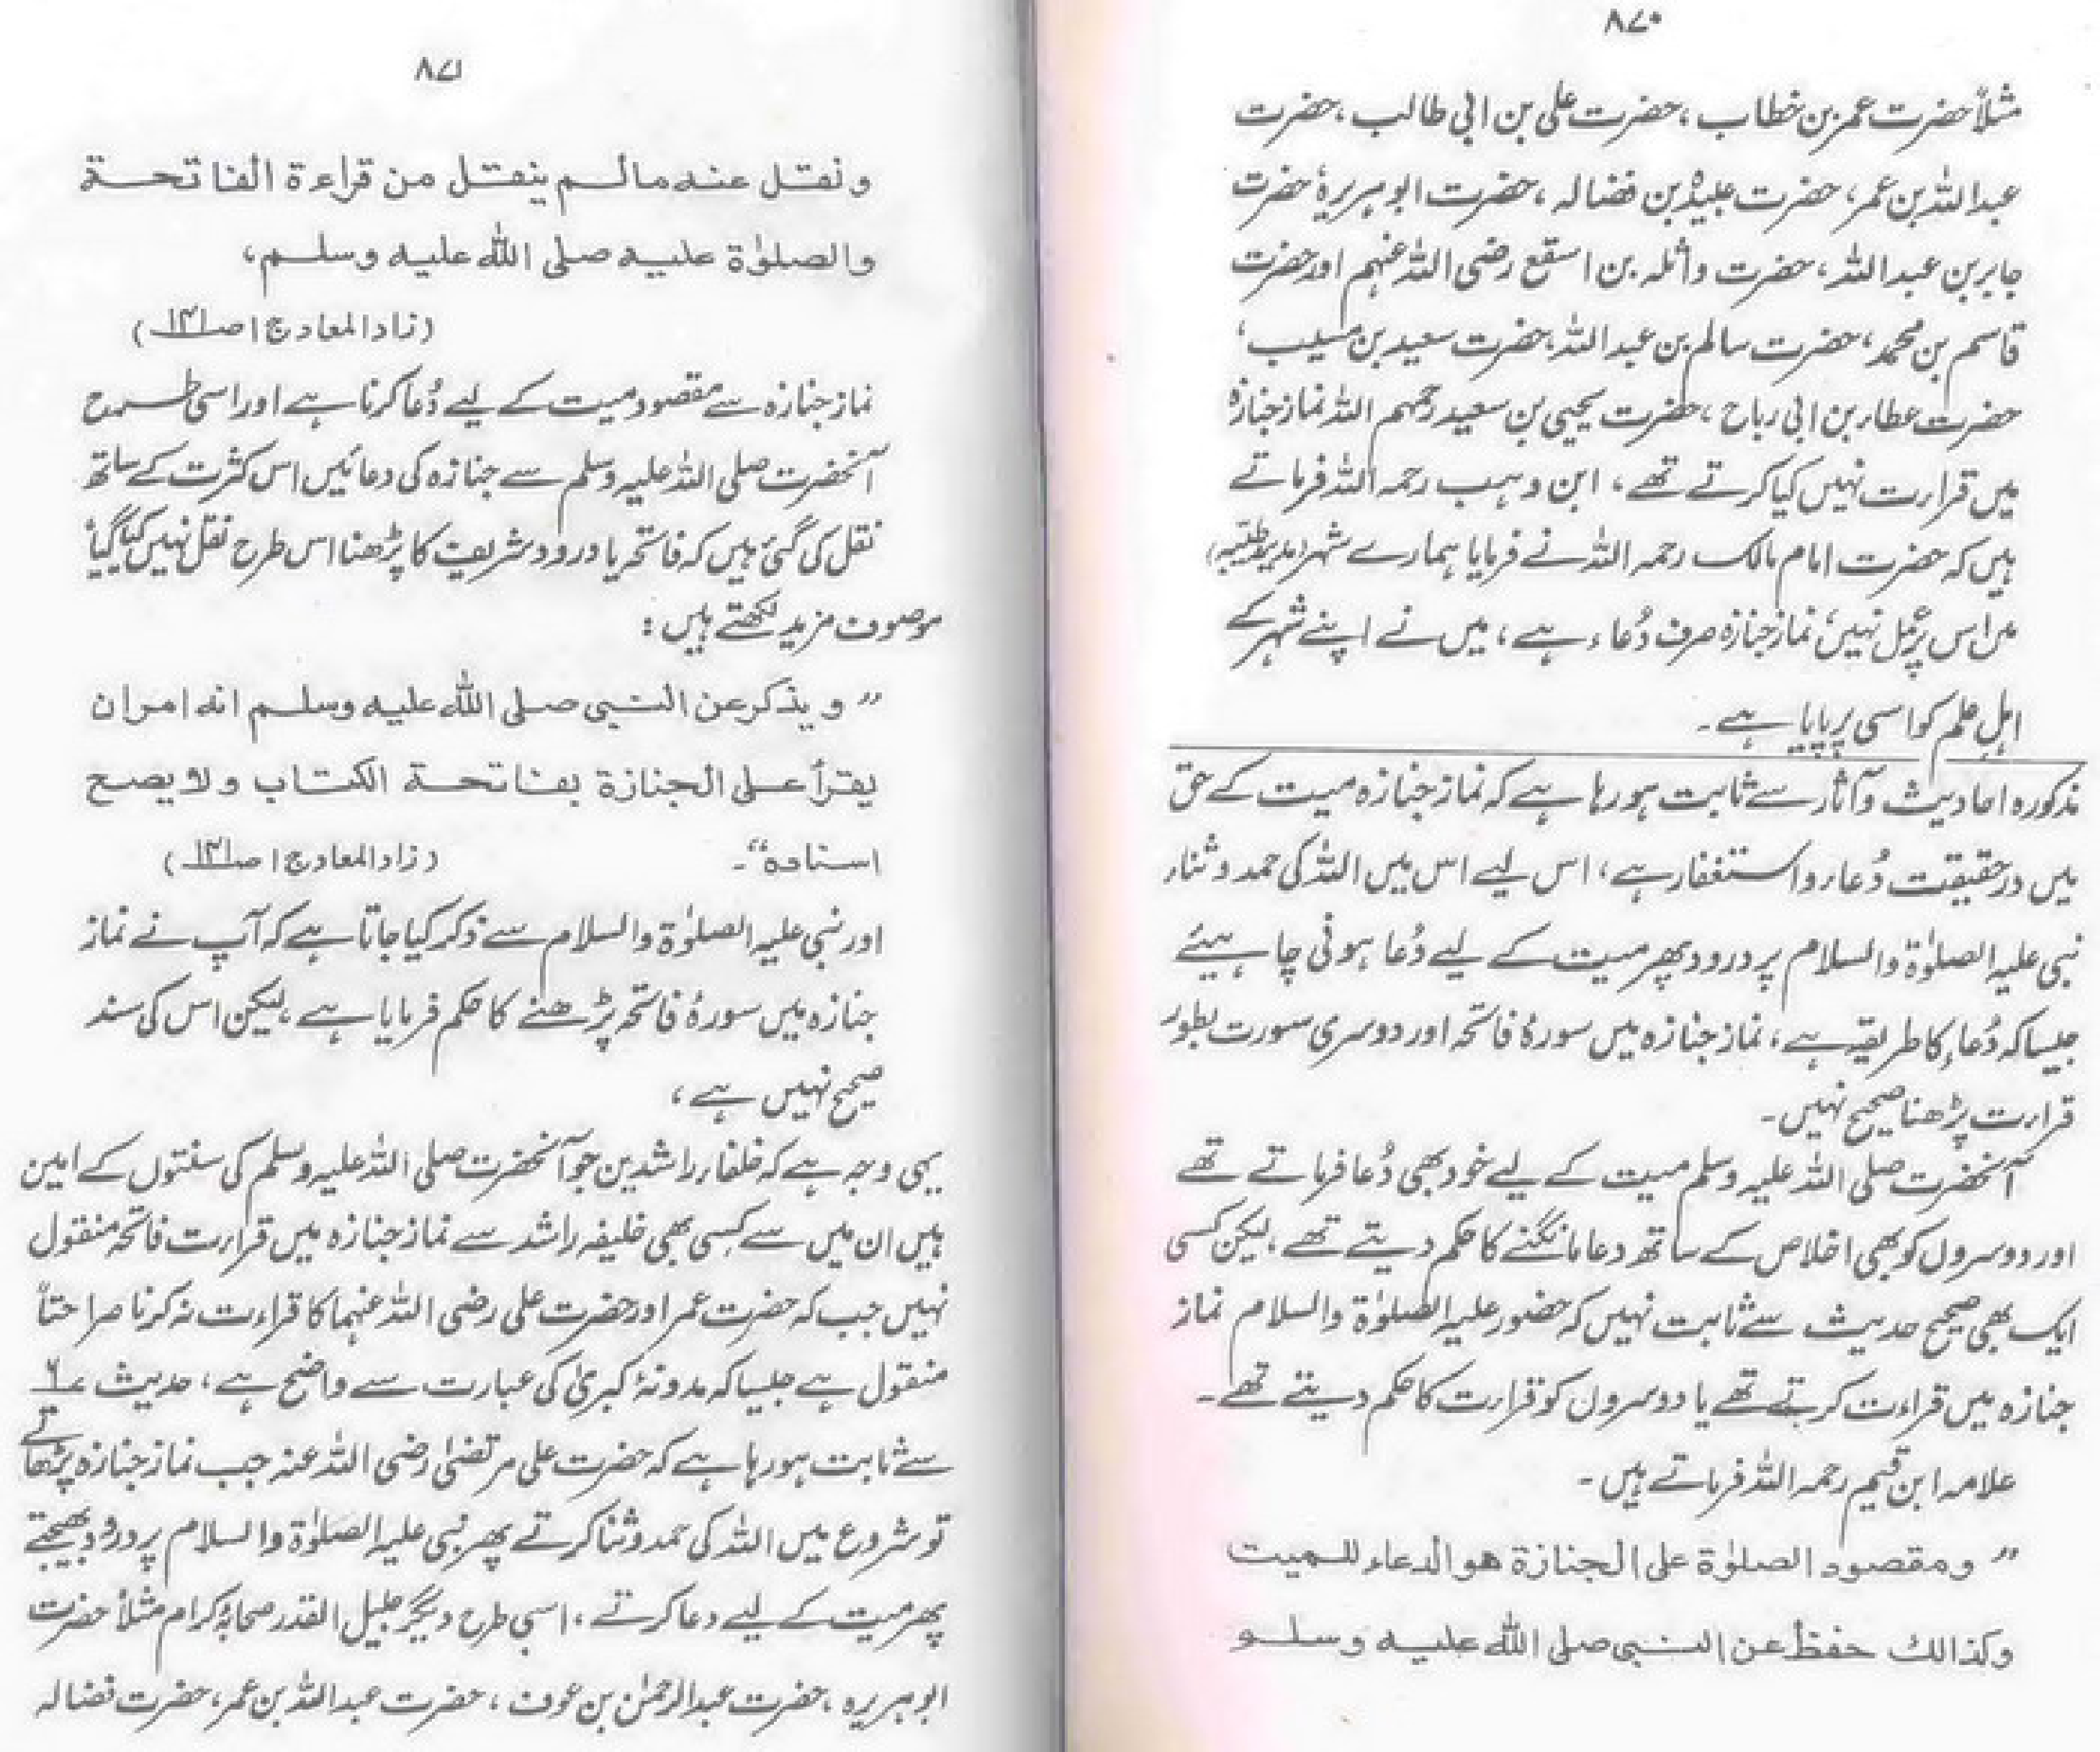 ۸۷۰
مثلاً حضرت عمر بن خطاب ، حضرت علی بن ابی طالب ، حضرت
عبداللہ بن عمر ، حضرت عبیدؓ بن فضالہ ، حضرت ابوہریرہؓ حضرت
جابر بن عبداللہ ، حضرت واثلہ بن اسقع رضی اللہ عنہم اور حضرت
قاسم بن محمد ، حضرت سالم بن عبداللہ ، حضرت سعید بن مسیب ،
حضرت عطار بن ابی رباح ، حضرت یحییٰ بن سعید رحمہم اللہ نماز جنازہ
میں قرارت نہیں کیا کرتے تھے ، ابن وہب رحمہ اللہ فرماتے
ہیں کہ حضرت امام مالک رحمہ اللہ نے فرمایا ہمارے شہر (مدینہ طیّبہ)
میں اس پر عمل نہیں ، نماز جنازہ صرف دُعاء ہے ، میں نے اپنے شہر کے
اہلِ علم کو اسی پر پایا ہے ۔
مذکورہ احادیث و آثار سے ثابت ہو رہا ہے کہ نماز جنازہ میت کے حق
میں درحقیقت دُعاء و استغفار ہے ، اس لیے اس میں اللہ کی حمد و ثناء
نبی علیہ الصلوٰۃ والسلام پر درود پھر میت کے لیے دُعا ہونی چاہیئے
جیسا کہ دُعاء کا طریقہ ہے ، نماز جنازہ میں سورۂ فاتحہ اور دوسری سورت بطور
قرارت پڑھنا صحیح نہیں ۔
آنحضرت صلی اللہ علیہ وسلم میت کے لیے خود بھی دُعا فرماتے تھے
اور دوسروں کو بھی اخلاص کے ساتھ دعا مانگنے کا حکم دیتے تھے ، لیکن کسی
ایک بھی صحیح حدیث سے ثابت نہیں کہ حضور علیہ الصلوٰۃ والسلام نماز
جنازہ میں قراءت کرتے تھے یا دوسروں کو قرارت کا حکم دیتے تھے ۔
علامہ ابن قیم رحمہ اللہ فرماتے ہیں ۔
” ومقصود الصلوٰة على الجنازة هو الدعاء للميت
وكذالك حفظ عن النبى صلى الله عليه وسلو
۸۷۱
ونقل عنه مالم ينقل من قراءة الفاتحة
والصلوٰة عليه صلى الله عليه وسلم ،
(زاد المعاد ج ۱ ص ۱۴۱)
نماز جنازہ سے مقصود میت کے لیے دُعا کرنا ہے اور اسی طرح
آنحضرت صلی اللہ علیہ وسلم سے جنازہ کی دعائیں اس کثرت کے ساتھ
نقل کی گئی ہیں کہ فاتحہ یا درود شریف کا پڑھنا اس طرح نقل نہیں کیا گیا
موصوف مزید لکھتے ہیں :
” ويذكر عن النبى صلى الله عليه وسلم انه امران
يقرأ على الجنازة بفاتحة الكتاب ولا يصح
اسناده “ ۔ (زاد المعاد ج ۱ ص ۱۴۱)
اور نبی علیہ الصلوٰۃ والسلام سے ذکر کیا جاتا ہے کہ آپ نے نماز
جنازہ میں سورۂ فاتحہ پڑھنے کا حکم فرمایا ہے ، لیکن اس کی سند
صحیح نہیں ہے ،
یہی وجہ ہے کہ خلفاء راشدین جو آنحضرت صلی اللہ علیہ وسلم کی سنتوں کے امین
ہیں ان میں سے کسی بھی خلیفہ راشد سے نماز جنازہ میں قرارت فاتحہ منقول
نہیں جب کہ حضرت عمر اور حضرت علی رضی اللہ عنہما کا قراءت نہ کرنا صراحتاً
منقول ہے جیسا کہ مدونۂ کبریٰ کی عبارت سے واضح ہے ، حدیث ۶
سے ثابت ہو رہا ہے کہ حضرت علی مرتضیٰ رضی اللہ عنہ جب نماز جنازہ پڑھاتے
تو شروع میں اللہ کی حمد و ثنا کرتے پھر نبی علیہ الصلوٰۃ والسلام پر درود بھیجتے
پھر میت کے لیے دعا کرتے ، اسی طرح دیگر جلیل القدر صحابہ کرام مثلاً حضرت
ابوہریرہ ، حضرت عبدالرحمٰن بن عوف ، حضرت عبداللہ بن عمر ، حضرت فضالہ